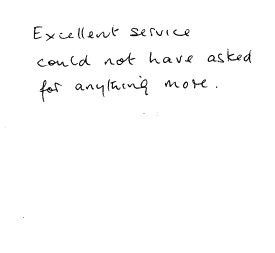 Excellent service
could not have asked
for anything more.